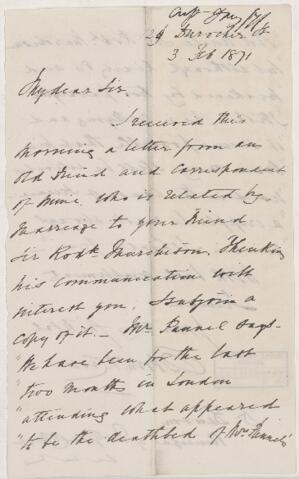 29 Durocher St
3 Feb 1871
My dear Sir,
I received this
morning a letter from an
old friend and correspondent
of mine, who is related by
marriage to your friend
Sir Rodk Murchison. Thinking
his communication will
interest you, I subjoin a
copy of it. — Mr Pannel says
"We have been for the last
"two months in London
"attending what appeared
"to be the deathbed of Mrs Pannel's